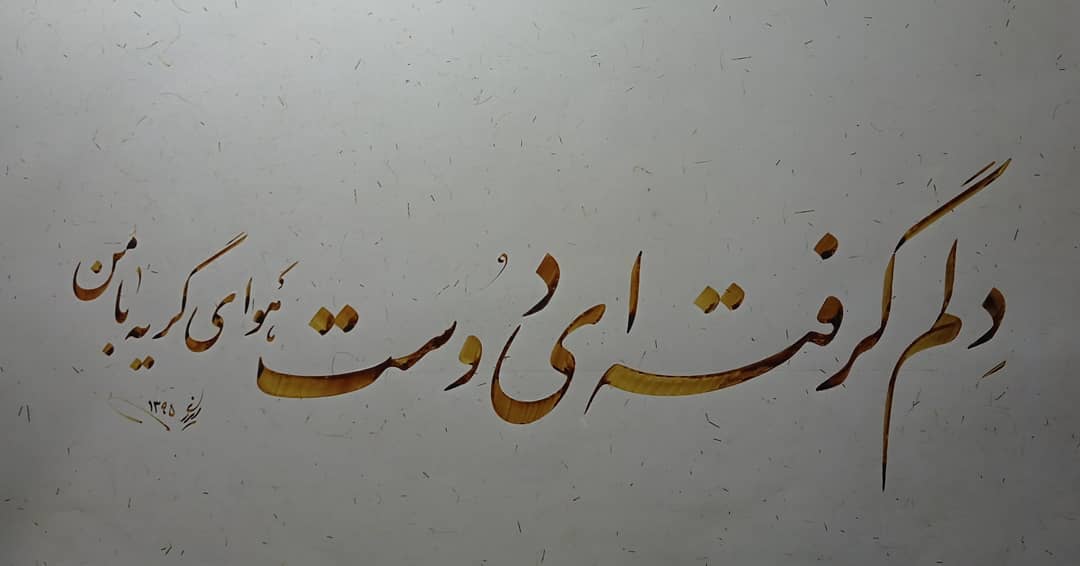 دلم گرفته ای دوست هوای گریه با من
۱۳۹۵